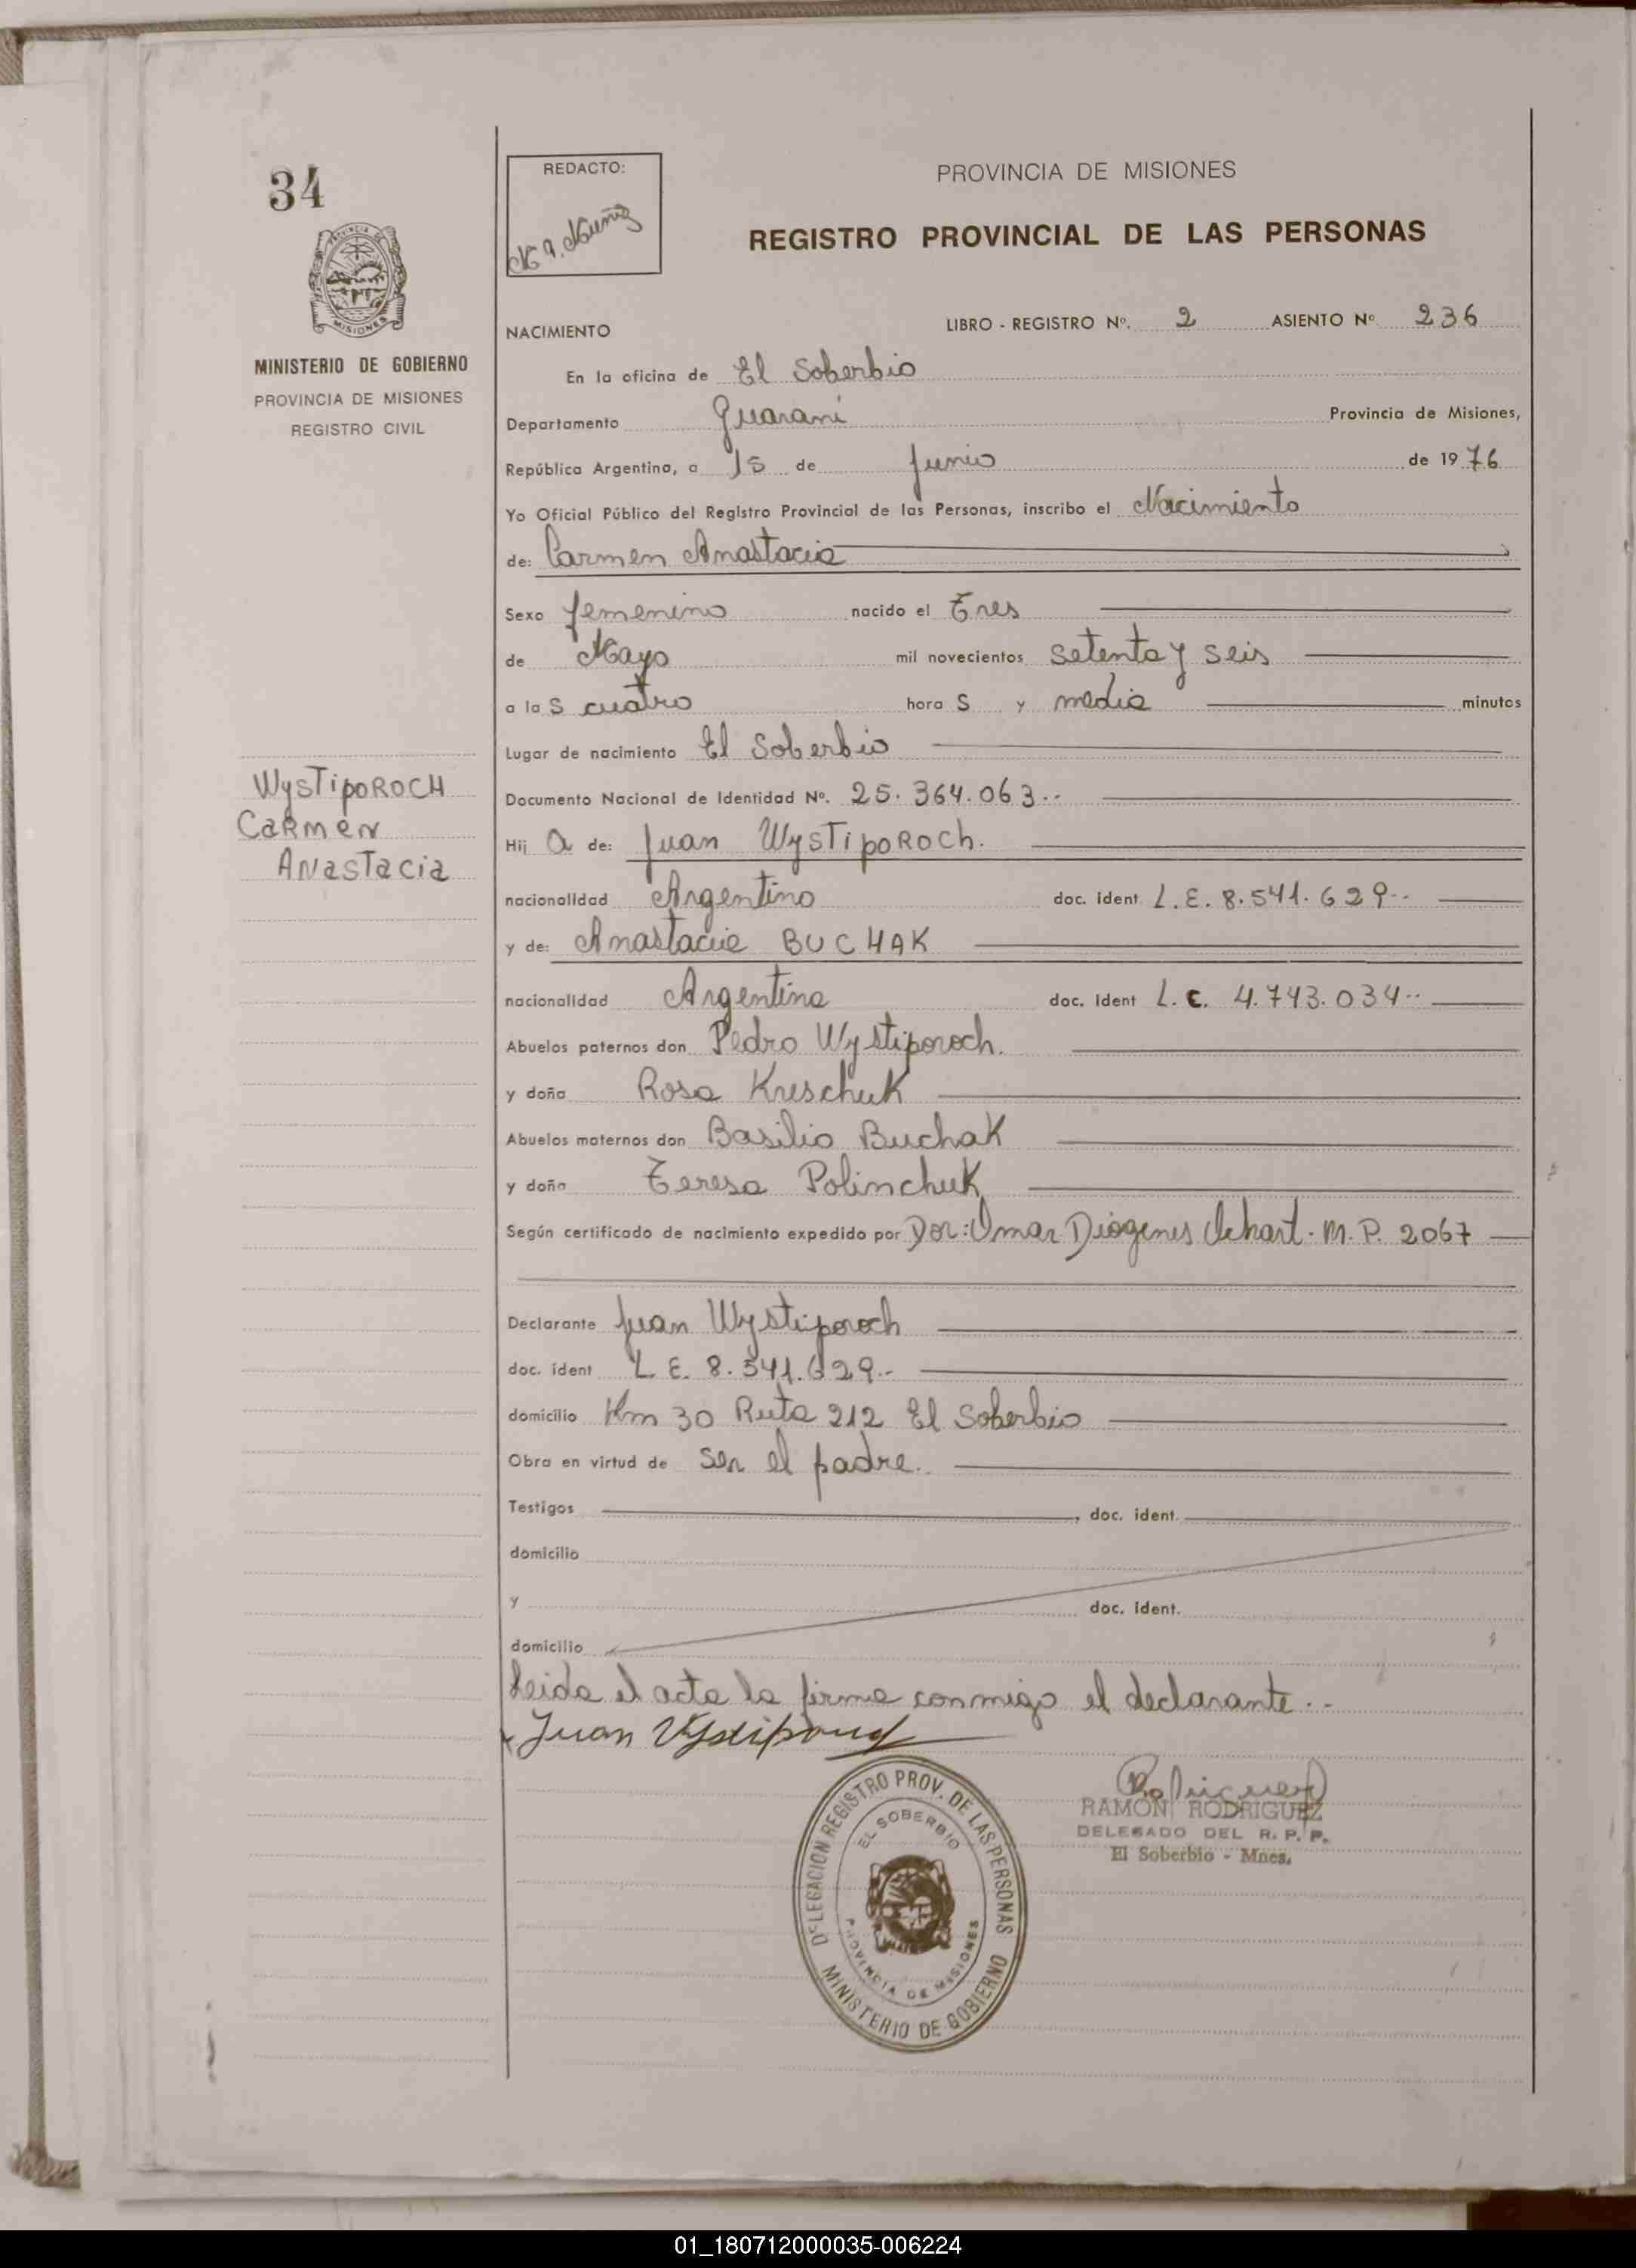 34
PROVINCIA DE MISIONES
MINISTERIO DE GOBIERNO
PROVINCIA DE MISIONES
REGISTRO CIVIL
WysTipoROCH
CaRmen
AnasTacia
REDACTO:
PROVINCIA DE MISIONES
REGISTRO PROVINCIAL DE LAS PERSONAS
NACIMIENTO LIBRO - REGISTRO Nº. 2 ASIENTO Nº 236
En la oficina de El Soberbio
Departamento Guaraní Provincia de Misiones,
República Argentina, a 15 de Junio de 1976
Yo Oficial Público del Registro Provincial de las Personas, inscribo el Nacimiento
de: Carmen Anastacia
Sexo femenino nacido el Tres
de Mayo mil novecientos setenta y seis
a las cuatro horas y media minutos
Lugar de nacimiento El Soberbio
Documento Nacional de Identidad Nº. 25.364.063.-
Hija de: Juan WysTipoRoch.
nacionalidad Argentino doc. ident L.E. 8.541.629.-
y de: Anastacia BUCHAK
nacionalidad Argentina doc. ident L.C. 4.743.034.-
Abuelos paternos don Pedro Wystiporoch.
y doña Rosa Kreschuk
Abuelos maternos don Basilio Buchak
y doña Teresa Polinchuk
Según certificado de nacimiento expedido por Dor: Omar Diógenes M.P. 2067
Declarante Juan Wystiporoch
doc. ident L.E. 8.541.629.-
domicilio Km 30 Ruta 212 El Soberbio
Obra en virtud de ser el padre.
Testigos , doc. ident.
domicilio
y doc. ident.
domicilio
Leida el acta la firma conmigo el declarante.-
Juan
DELEGACION REGISTRO PROV. DE LAS PERSONAS
EL SOBERBIO
PROVINCIA DE MISIONES
MINISTERIO DE GOBIERNO
RAMON RODRIGUEZ
DELEGADO DEL R. P. P.
El Soberbio - Mnes.
01_180712000035-006224